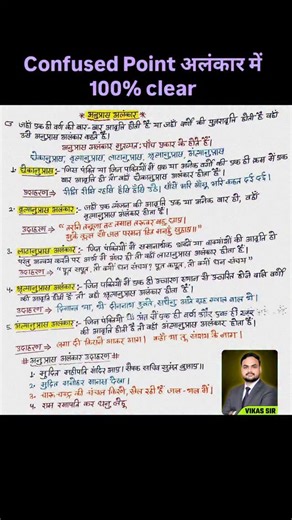 Confused Point अलंकार में
100% clear
अनुप्रास अलंकार
जहाँ एक ही वर्ण की बार-बार आवृति होती है या जहाँ वर्णों की पुनरावृति होती है वहाँ
अनुप्रास अलंकार कहते हैं।
अनुप्रास अलंकार मुख्यतः पाँच प्रकार के होते हैं।
छेकानुप्रास, वृत्यानुप्रास, लाटानुप्रास, श्रुत्यानुप्रास, अंत्यानुप्रास
1. छेकानुप्रास :- जिस पंक्ति में एक या अनेक वर्णों की एक ही क्रम में एक
बार आवृति हो तो वहाँ छेकानुप्रास अलंकार होता है।
उदाहरण → रीझि रीझि रहसि रहसि हँसि हँसि उठै। साँसै भरि आँसू भरि कहत दई दई।
2. वृत्यानुप्रास :- जहाँ एक व्यंजन की आवृति एक या अनेक बार हो, वहाँ
वृत्यानुप्रास अलंकार होता है।
उदाहरण → तरनि तनूजा तट तमाल तरुवर बहु छाए।
झुके कूल सों जल परसन हित मनहुँ सुहाए॥
3. लाटानुप्रास :- जिस पंक्तियों में समानार्थक शब्दों या वाक्यांशों की आवृति हो
परंतु अन्वय करने पर अर्थ में अंतर हो तो वहाँ लाटानुप्रास अलंकार होता है।
उदाहरण → पूत सपूत, तो क्यों धन संचय? पूत कपूत, तो क्यों धन संचय
4. श्रुत्यानुप्रास :- जिन पंक्तियों में एक ही उच्चारण स्थान से उच्चरित होने वाले वर्णों
की आवृति होता है तो वहाँ श्रुत्यानुप्रास अलंकार होता है।
उदाहरण →
5. अन्त्यानुप्रास :- जिन पंक्तियों के अंत में एक ही वर्ण और एक ही स्वर
की आवृति होती है तो वहाँ अन्त्यानुप्रास अलंकार होता है।
उदाहरण →
# अनुप्रास अलंकार उदाहरण #
1. मुदित महीपति मंदिर आए। सेवक सचिव सुमंत्र बुलाए॥
2. मुदित
3. चारु चन्द्र की चंचल किरणें, खेल रही हैं जल-थल में।
4.
VIKAS SIR